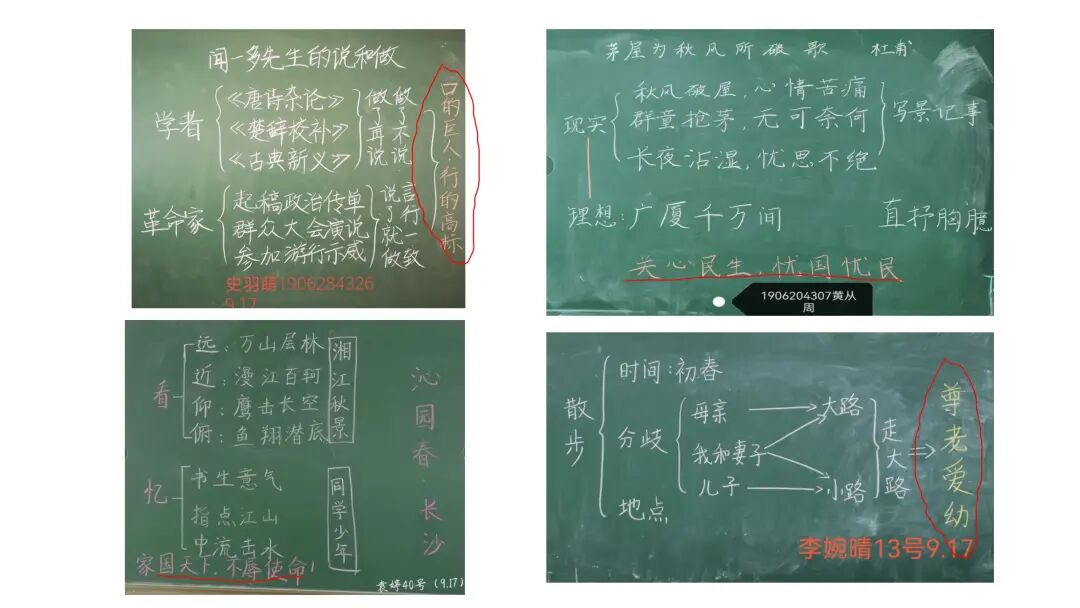 闻一多先生的说和做
学者
《唐诗杂论》
《楚辞校补》
《古典新义》
做了再说
做了不说
革命家
起稿政治传单
群众大会演说
参加游行示威
说了就做
言行一致
口的巨人·行的高标
史羽萌1906284326
9.17
茅屋为秋风所破歌 杜甫
现实
秋风破屋,心情苦痛
群童抢茅,无可奈何
长夜沾湿,忧思不绝
写景记事
理想:广厦千万间 直抒胸臆
关心民生,忧国忧民
1906204307黄从
周
看
远:万山层林
近:漫江百轲
仰:鹰击长空
俯:鱼翔潜底
湘江秋景
忆
书生意气
指点江山
中流击水
同学少年
沁园春·长沙
家国天下,不辱使命!
袁婷40号(9.17)
散步
时间:初春
分歧
母亲
我和妻子
儿子
大路
小路
走大路
地点
尊老爱幼
李婉晴13号9.17